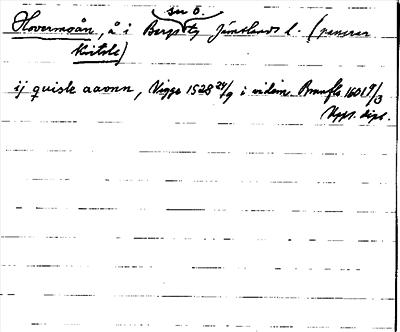 sv ö.
Hovermoån, å i Bergs tg Jämtlands l. (numera
Kvitsle)
ij quisle aaonn, Vigge 1528 24/9 i vidim. Brunflo 1601 9/3
Upps. dipl.